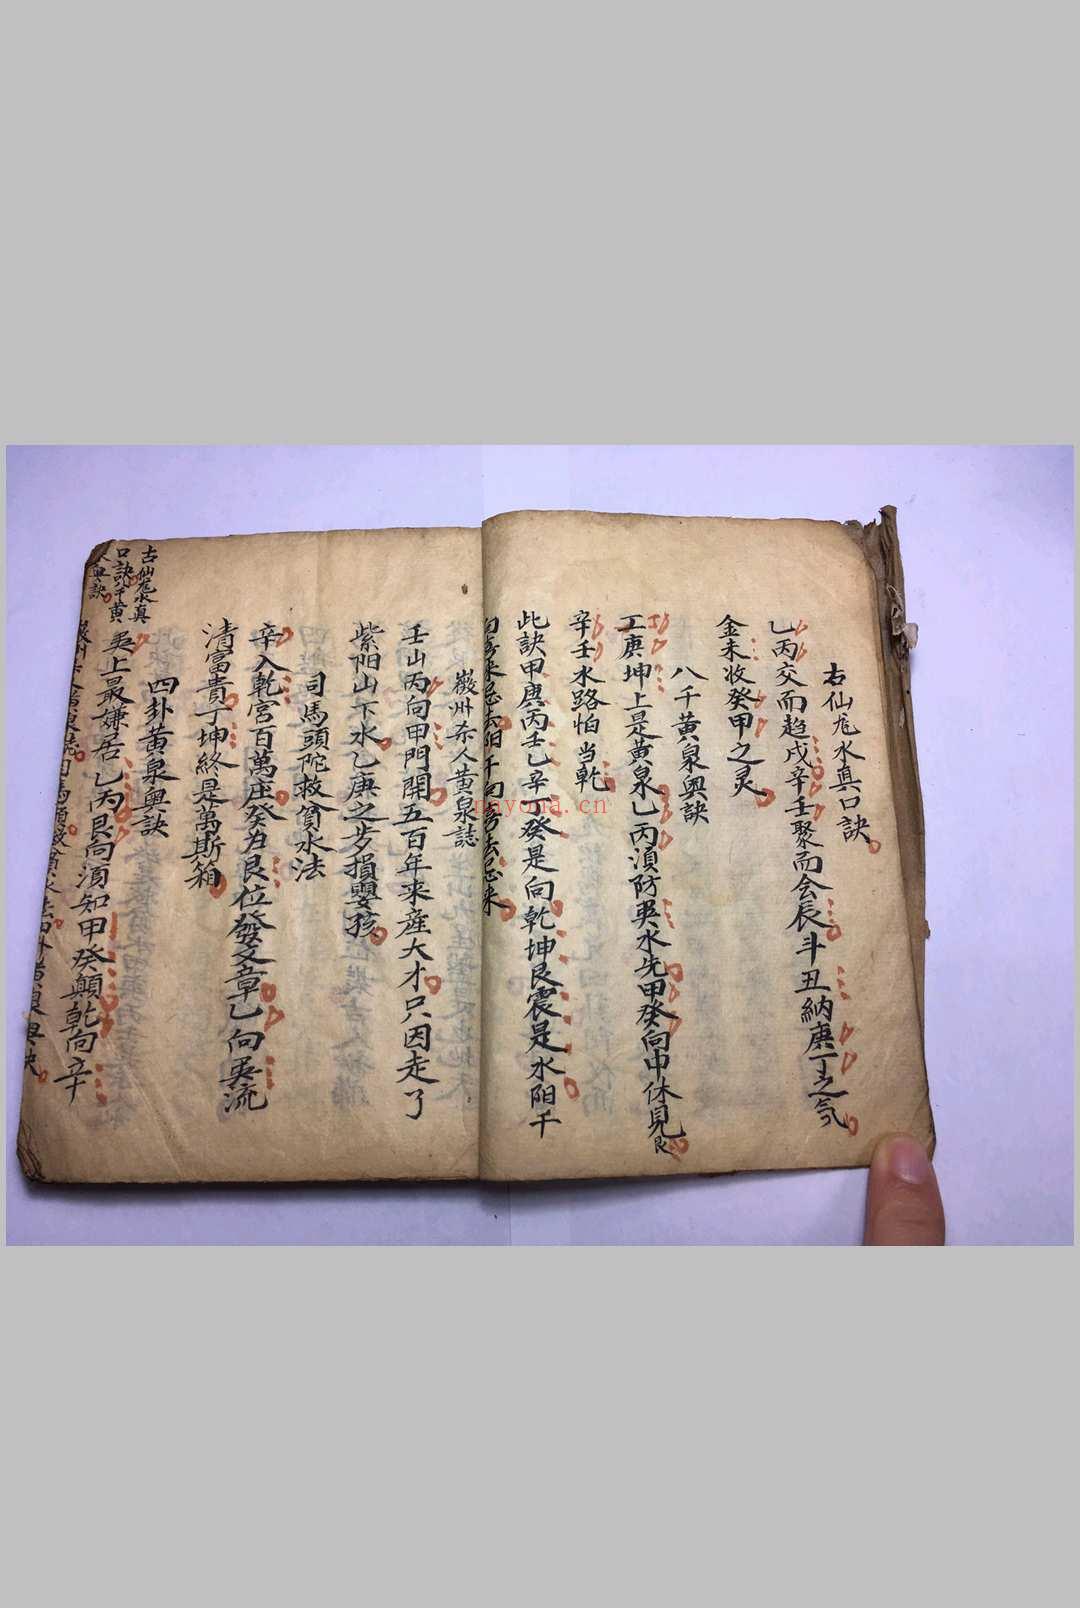 古仙尨水真口訣
乙丙交而趋戍辛壬聚而会辰斗丑納庚丁之氣
金未收癸甲之灵
八千黃泉奧訣
丁庚坤上是黃泉乙丙湏防巽水先甲癸向中休見艮
辛壬水路怕当乾
此訣甲庚丙壬乙辛丁癸是向乾坤艮震是水阳千
向忌來忌去阴千向忌去忌來
嚴州杀人黄泉誌
壬山丙向甲門開五百年来産大才只因走了
紫阳山下水乙庚之步損嬰孩
司馬頭陀救貧水法
辛入乾宮百萬庄癸为艮位發文章乙向巽流
清富貴丁坤終是萬斯箱
四卦黃泉奧訣
巽上最嫌居乙丙艮向湏知甲癸顛乾向辛
古仙尨水真
口訣八千黄
泉奧訣
nnyona.cn